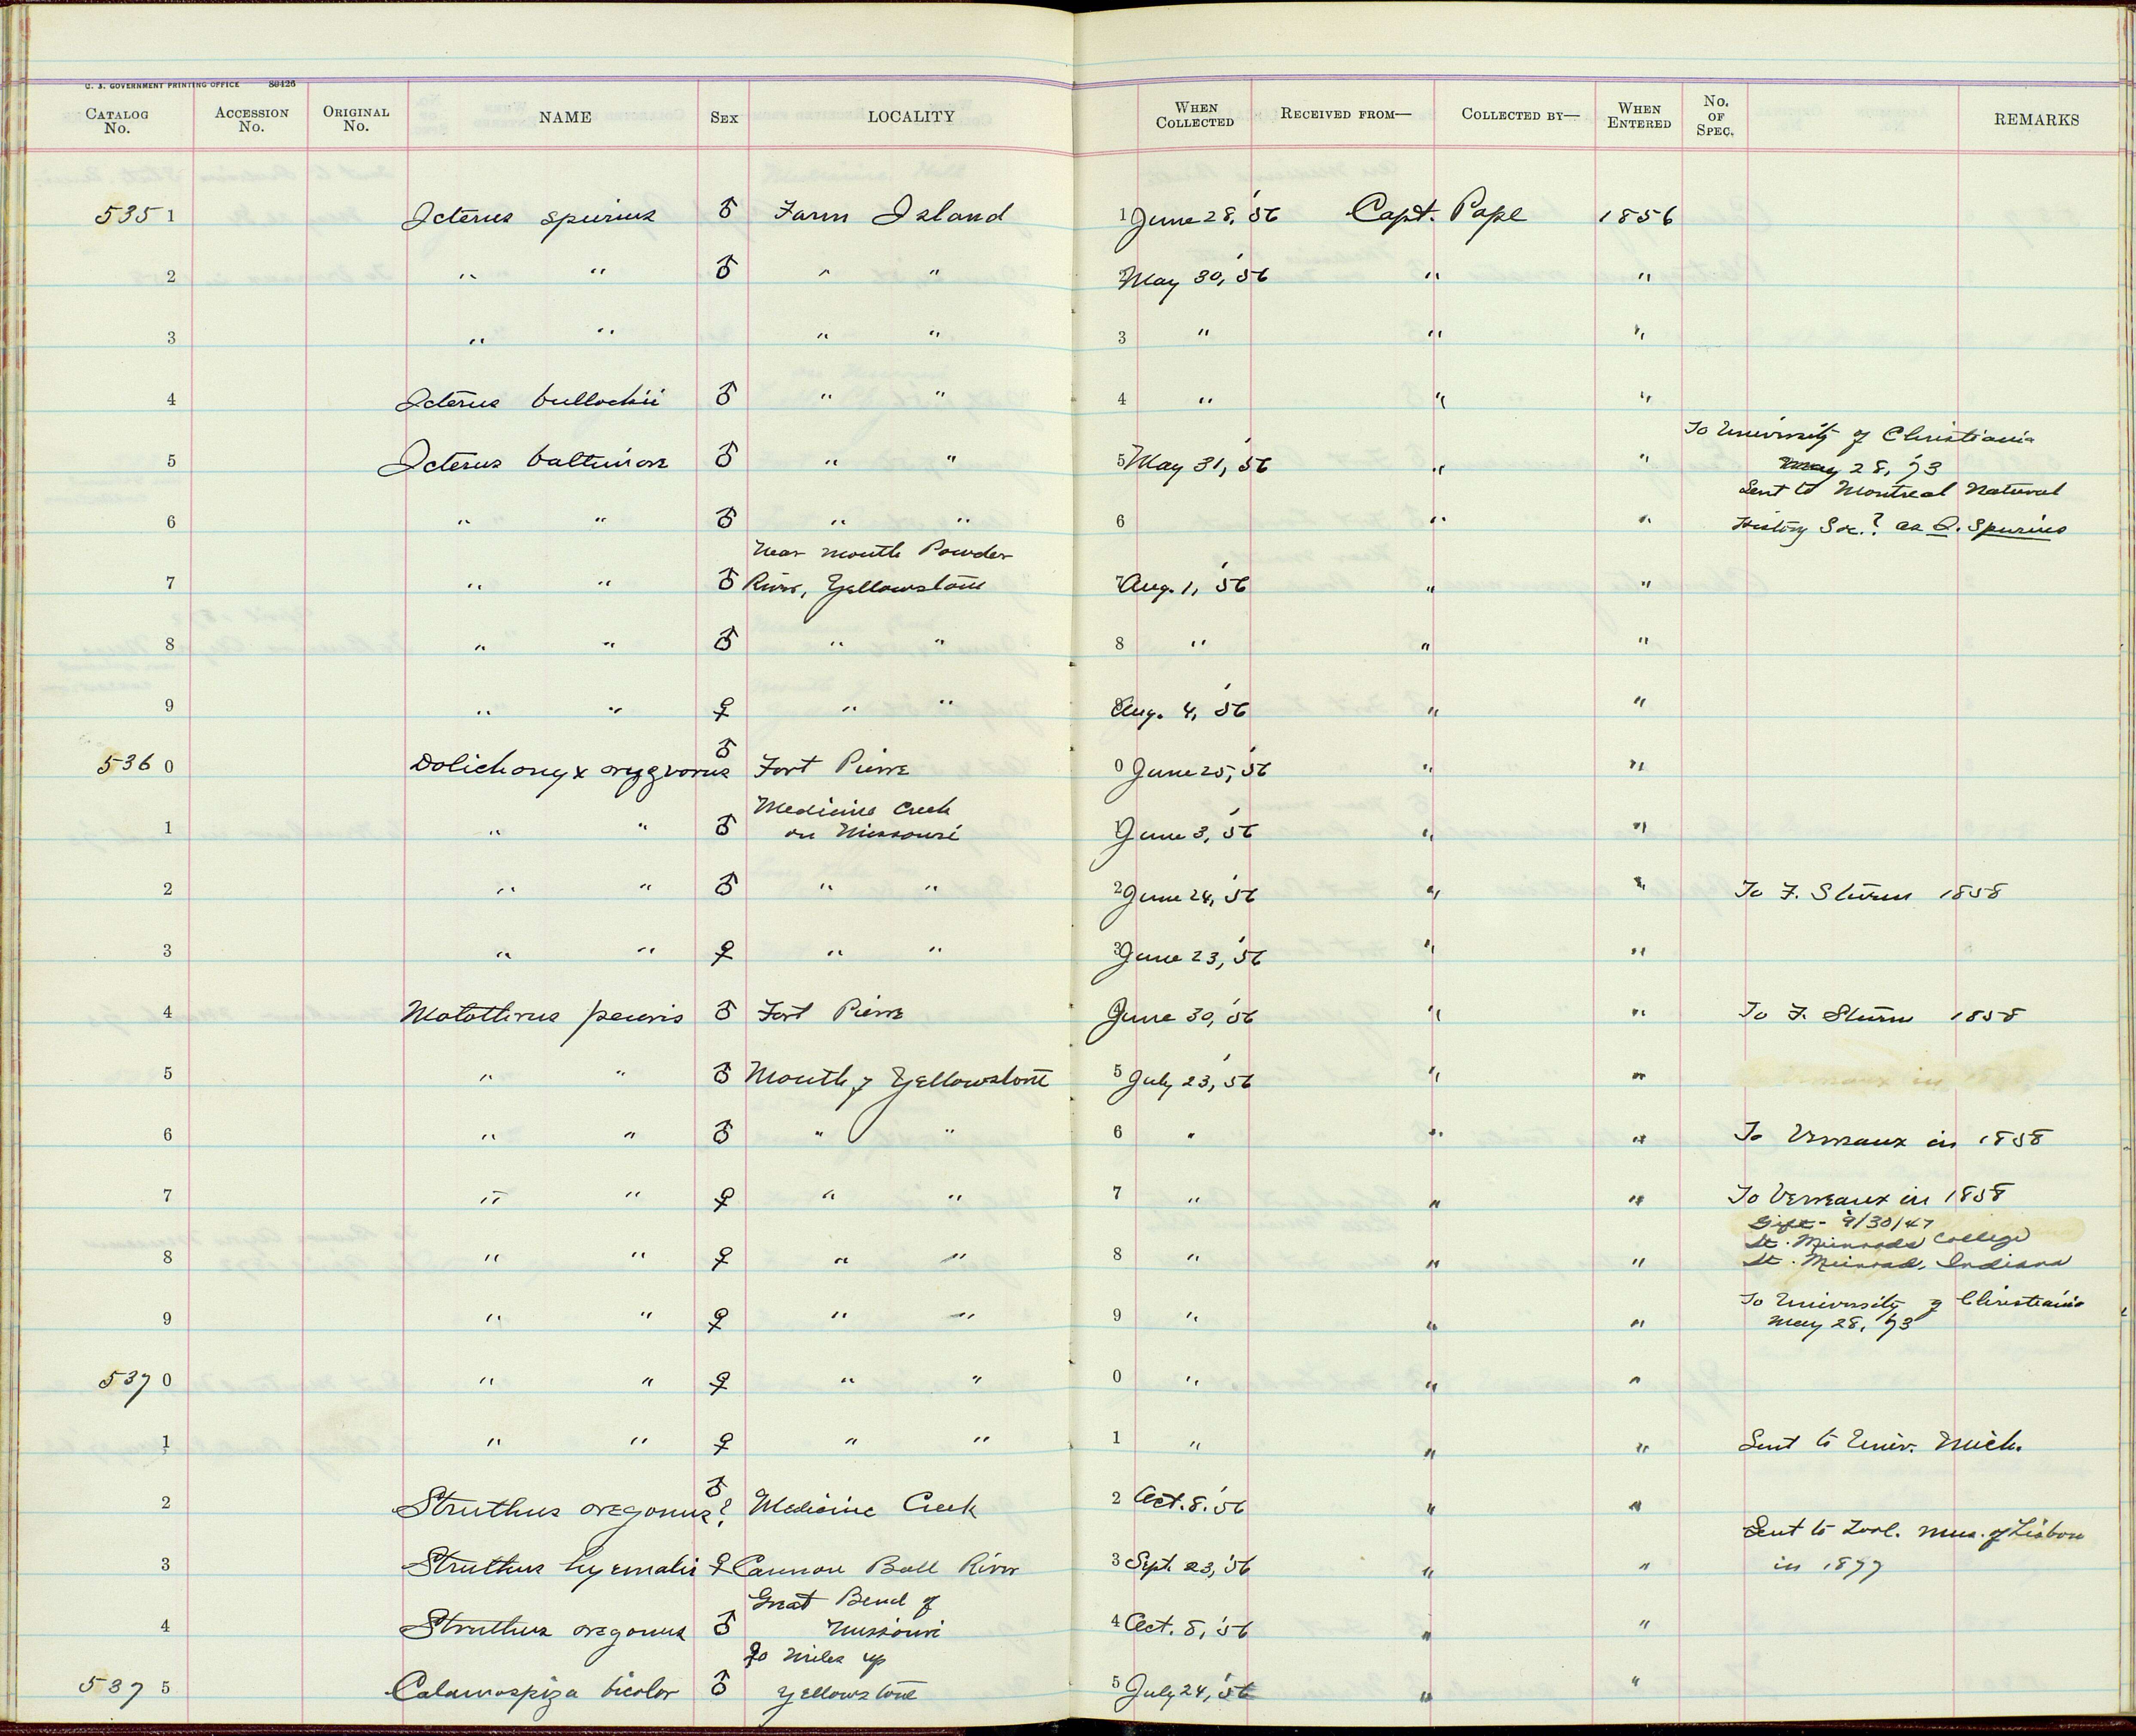 U. S. GOVERNMENT PRINTING OFFICE 80426
CATALOG No. ACCESSION No. ORIGINAL No. NAME SEX LOCALITY WHEN COLLECTED RECEIVED FROM— COLLECTED BY— WHEN ENTERED No. OF SPEC. REMARKS
5351 Icterus spurius ♂ Farm Island 1 June 28, '56 Capt. Pope 1856
2 " " ♂ " " May 30, '56 " "
3 " " " " 3 " " "
4 Icterus bullockii ♂ " " 4 " " "
To University of Christiania
5 Icterus baltimore ♂ " " 5 May 31, '56 " " May 28, '73
Sent to Montreal Natural
6 " " ♂ " " 6 " " History Soc.? as I. Spurius
Near mouth Powder
7 " " ♂ River, Yellowstone Aug. 1, '56 " "
8 " " ♂ " " 8 " " "
9 " " ♀ " " Aug. 4, '56 " "
5360 Dolichonyx oryzvorus ♂ Fort Pierre 0 June 25, '56 " "
Medicine Creek
1 " " ♂ on Missouri June 3, '56 " "
2 " " ♂ " " 2 June 24, '56 " " To F. Sturm 1858
3 " " ♀ " " 3 June 23, '56 " "
4 Molothrus pecoris ♂ Fort Pierre June 30, '56 " " To F. Sturm 1858
5 " " ♂ Mouth of Yellowstone 5 July 23, '56 " "
6 " " ♂ " " 6 " " " To Verreaux in 1858
7 " " ♀ " " 7 " " " To Verreaux in 1858
Gift - 9/30/47
St. Meinrads College
8 " " ♀ " " 8 " " " St. Meinrad, Indiana
To University of Christiania
9 " " ♀ " " 9 " " " May 28, '73
5370 " " ♀ " " 0 " " "
1 " " ♀ " " 1 " " " Sent to Univ. Mich.
2 Struthus oregonus? ♂ Medicine Creek 2 Oct. 8. '56 " "
Sent to Zool. Mus. of Lisbon
3 Struthus hyemalis ♀ Cannon Ball River 3 Sept. 23, '56 " " in 1877
Great Bend of
4 Struthus oregonus ♂ Missouri 4 Oct. 8, '56 " "
miles up
5375 Calamospiza bicolor ♂ Yellowstone 5 July 24, '56 " "